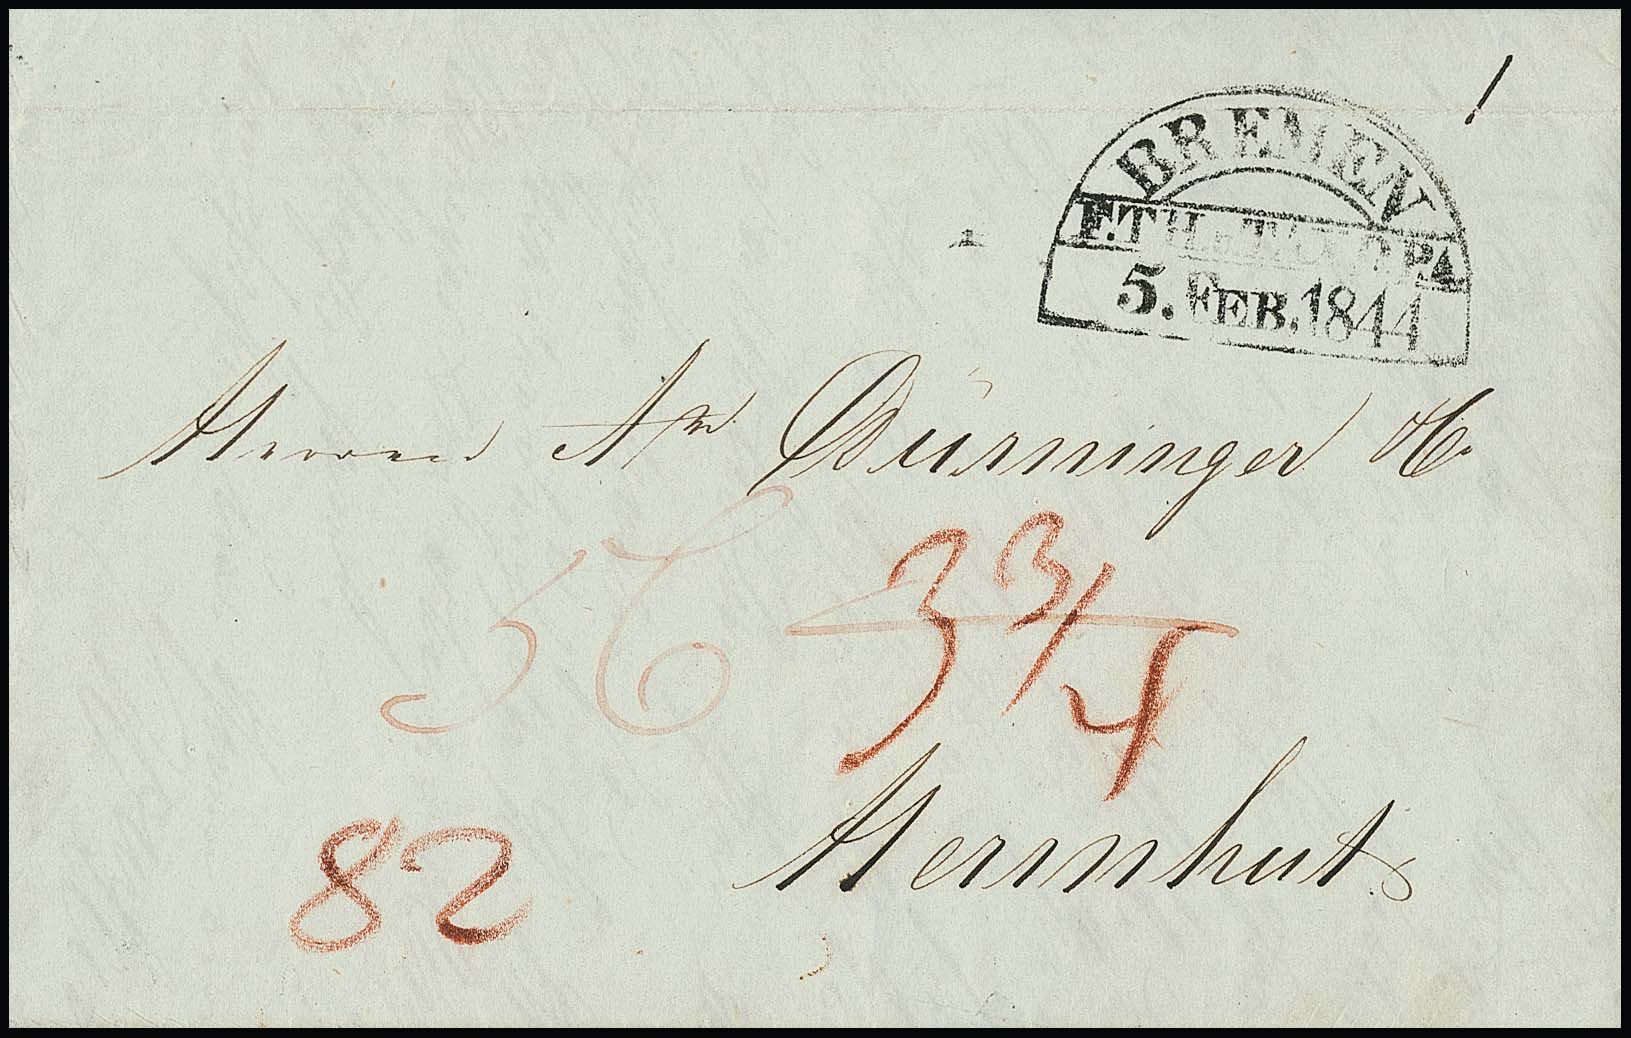 BREMEN
F. TH. & TAX. O. P. A.
5. FEB. 1844
Herren Abm Dürninger & Co.
3 3/4
Herrnhut
82